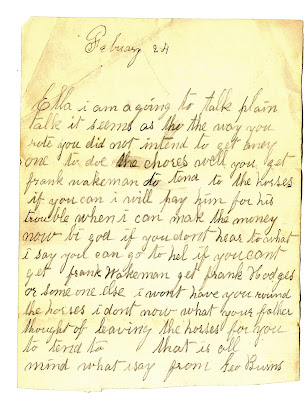 Febuary 24
Ella i am a going to talk plain
talk it seems as tho the way you
rote you did not intend to get aney
one to doe the chores well you get
frank wakeman to tend to the horses
if you can i will pay him for his
trouble when i can make the money
now bi god if you dont hear to what
i say you can go to hel if you cant
get frank Wakeman get frank Hodges
or some one else i wont have you round
the horses i dont now what your father
thought of leaving the horses for you
to tend to that is all
mind what i say from Leo Burns